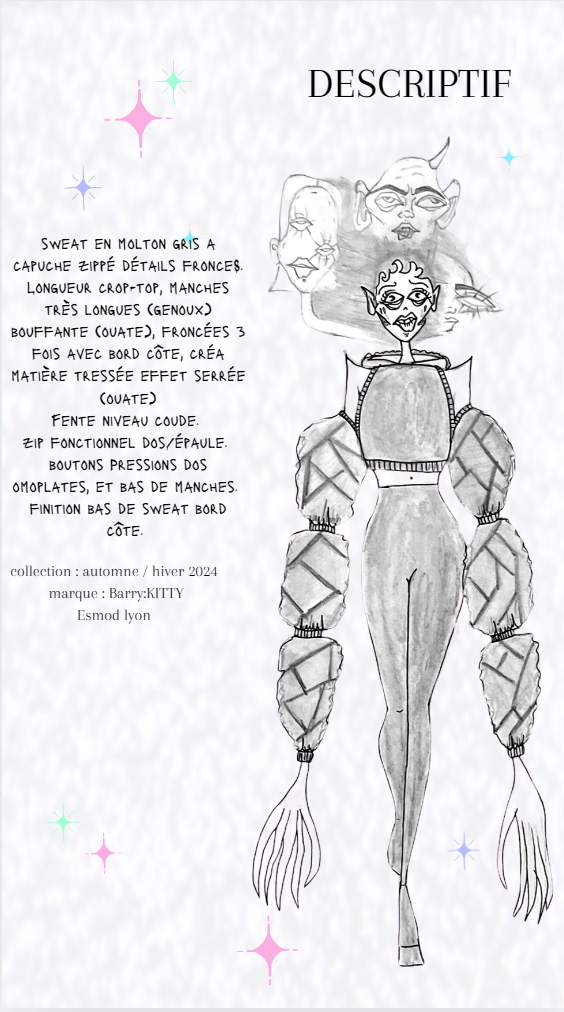 DESCRIPTIF
SWEAT EN MOLTON GRIS A
CAPUCHE ZIPPÉ DÉTAILS FRONCES.
LONGUEUR CROP-TOP, MANCHES
TRÈS LONGUES (GENOUX)
BOUFFANTE (OUATE), FRONCÉES 3
FOIS AVEC BORD CÔTE, CRÉA
MATIÈRE TRESSÉE EFFET SERRÉE
(OUATE)
FENTE NIVEAU COUDE.
ZIP FONCTIONNEL DOS/ÉPAULE.
BOUTONS PRESSIONS DOS
OMOPLATES, ET BAS DE MANCHES.
FINITION BAS DE SWEAT BORD
CÔTE.
collection : automne / hiver 2024
marque : Barry:KITTY
Esmod lyon